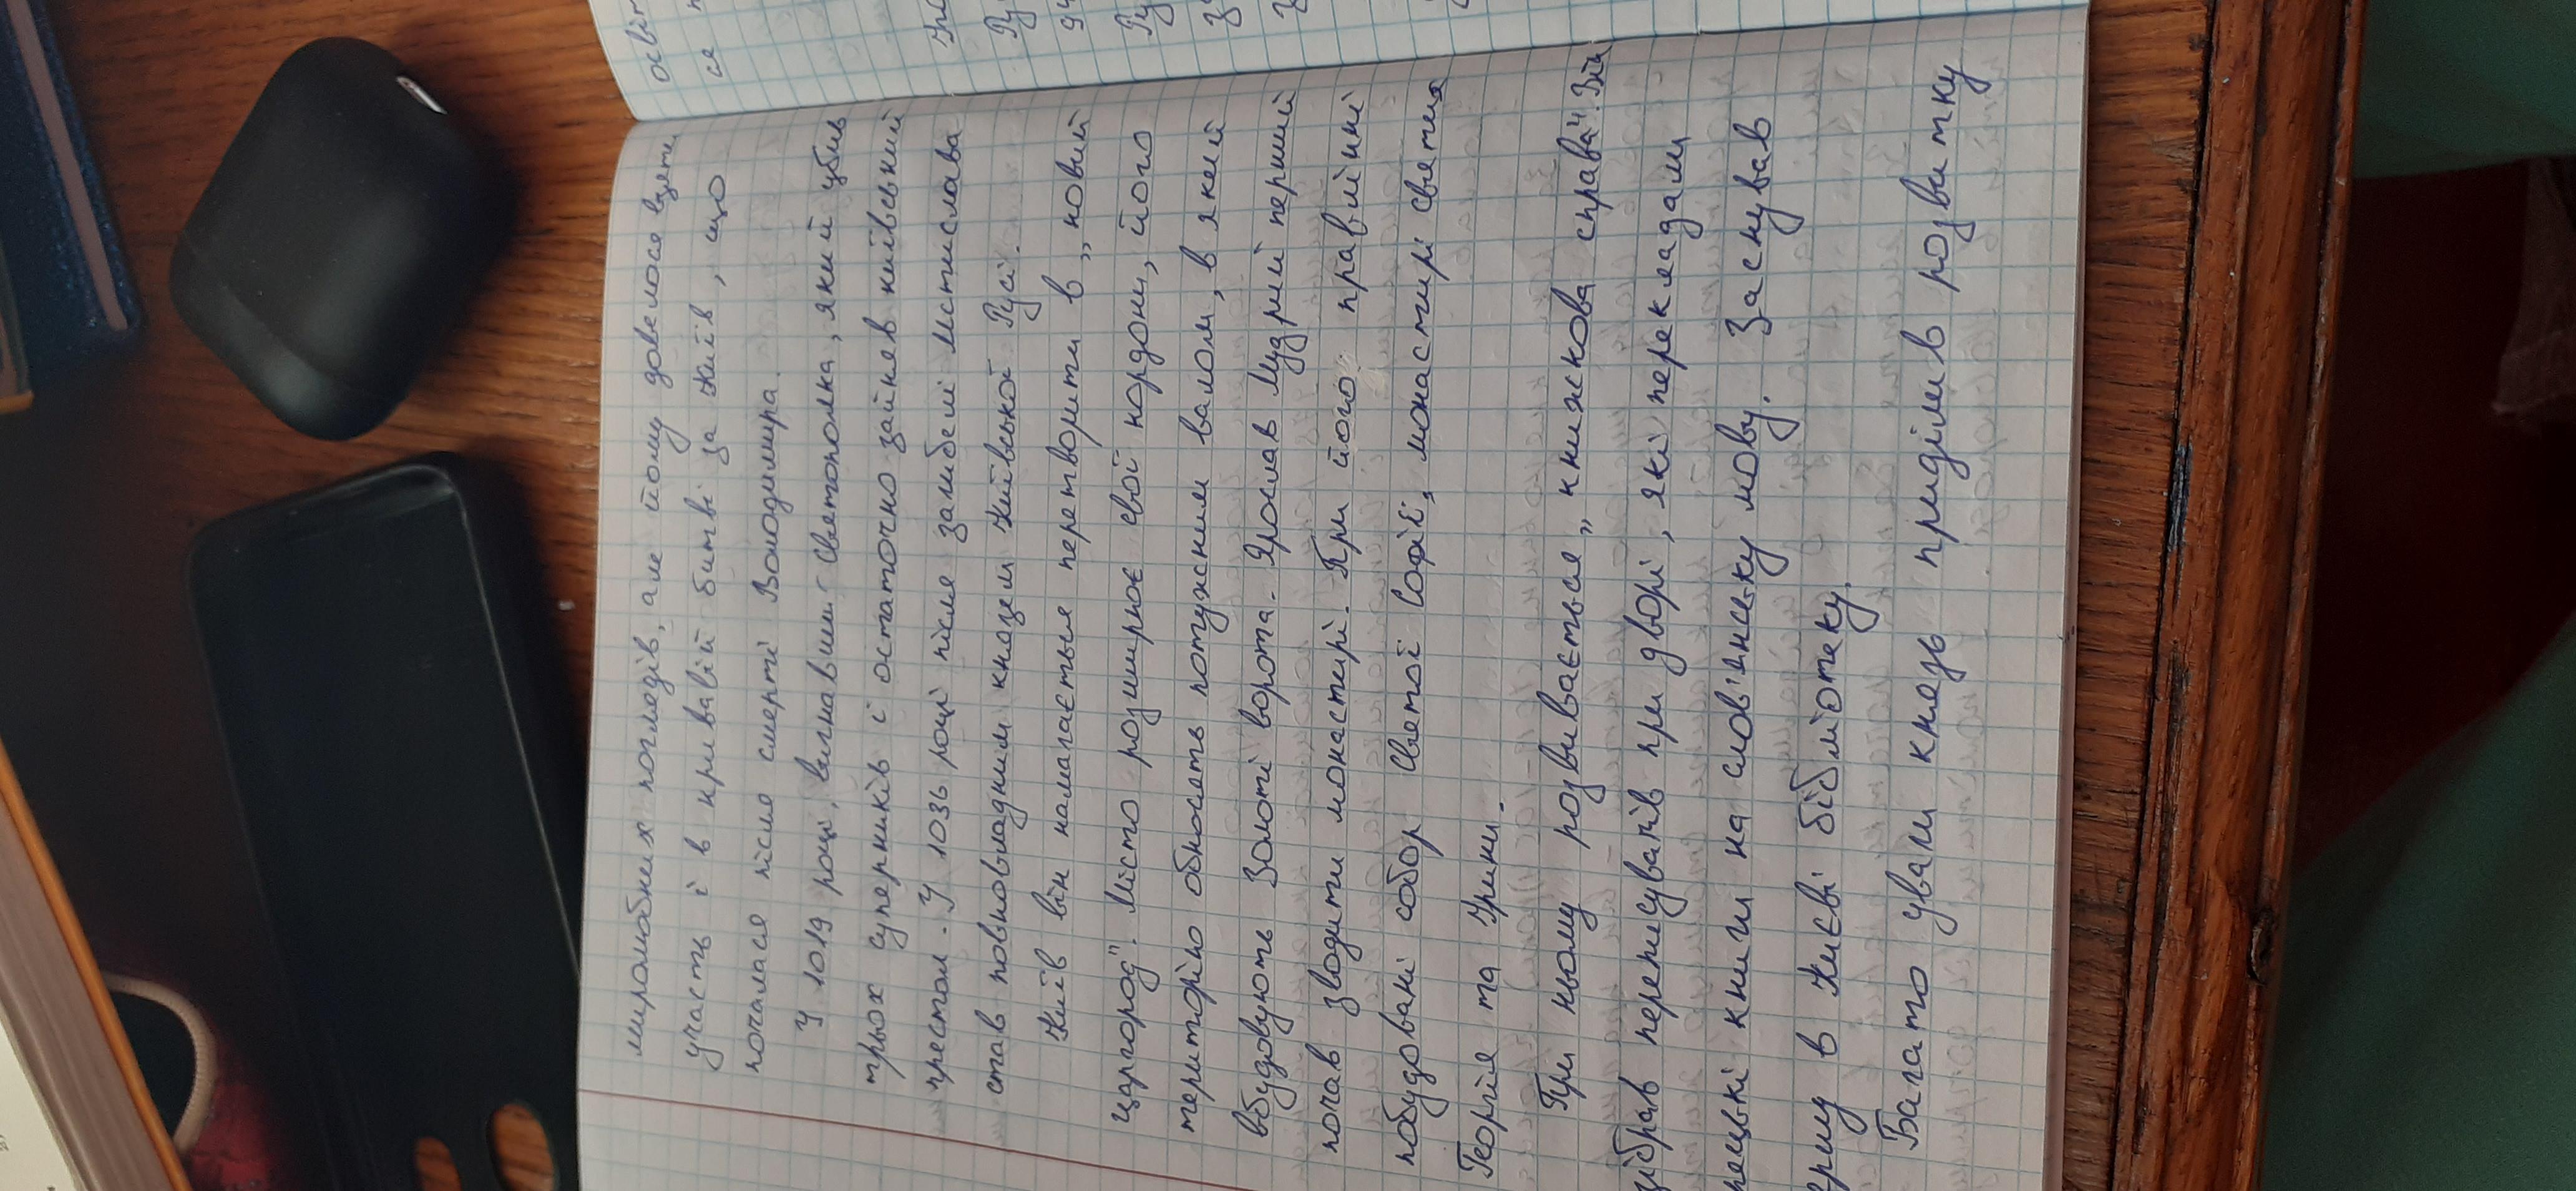 освіт
се
миролюбних поглядів, але йому довелося взяти
участь і в кривавій битві за Київ, що
почалася після смерті Володимира.
У 1019 році, вигнавши Святополка, який убив
трьох суперників і остаточно зайняв київський
престол. У 1036 році після загибелі Мстислава
став повновладним князем Київської Русі.
Київ він намагається перетворити в „новий
Царгород". Місто розширює свої кордони, його
територію обносять потужним валом, в який
вбудовують Золоті ворота. Ярослав Мудрий перший
почав зводити монастирі. При його правлінні
побудовані собор Святої Софії, монастирі святих
Георгія та Ірини.
При ньому розвивається „книжкова справа". Він
зібрав переписувачів при дворі, які перекладали
грецькі книги на слов'янську мову. Заснував
першу в Києві бібліотеку.
Багато уваги князь приділив розвитку